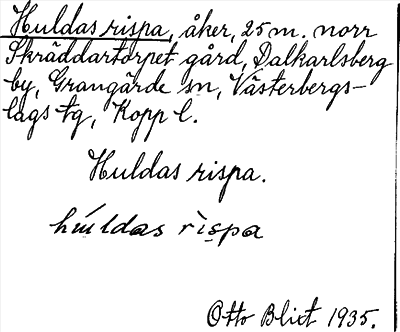 Huldas rispa, åker, 25 m. norr
Skräddartorpet gård, Dalkarlsberg
by, Grangärde sn, Västerbergs-
lags tg, Kopp l.
Huldas rispa.
húldas rìspa
Otto Blixt 1935.